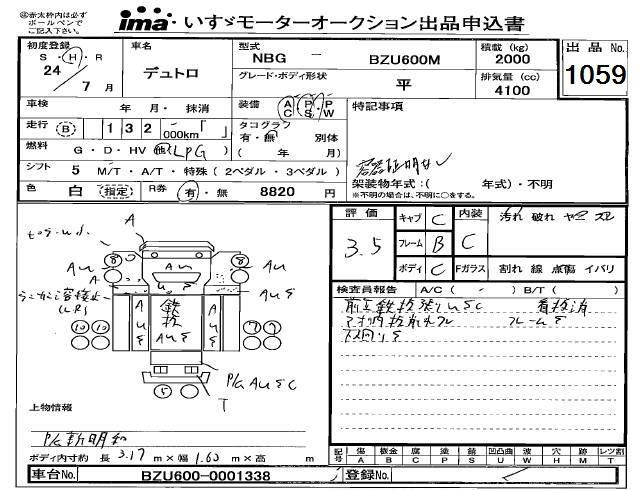 ㊟赤太枠内は必ず
ボールペンで
ご記入下さい。
ima いすゞモーターオークション出品申込書
初度登録 車名 型式 積載 (kg) 出品No.
S・H・R デュトロ NBG － BZU600M 2000 1059
24年 7月 グレード・ボディ形状 平 排気量 (cc) 4100
車検 年 月・ 抹消 装備 AC PS PW 特記事項
走行 (B) 132 000km「 」 タコグラフ 有・無 別体
燃料 G・D・HV 他(LPG) ( 年 月)
シフト 5 M/T・A/T・特殊 (2ペダル・3ペダル)
架装物年式:( 年式)・不明
※不明の場合は、不明に○をする。
色 白 (指定) R券 有・無 8820 円
評価 3.5 キャブ C 内装 C 汚れ 破れ ヤニ ズレ
フレーム B
ボディ C Fガラス 割れ 線 点傷 イバリ
検査員報告 A/C ( - ) B/T ( )
A
Au
Au
A
Au
AuS
鉄板
AuS
AuS
P/G AuSC
T
⑧ ⑧
⑩⑩ ⑦⑦
⑤
上物情報
P/G 新明和
ボディ内寸約 長 3.17 m×幅 1.60 m×高 m
記号 傷A 板金B 腐C 塗P 錆S 凹凸曲U 波W 穴H 跡M レツ割T
車台No. BZU600-0001338 登録No.